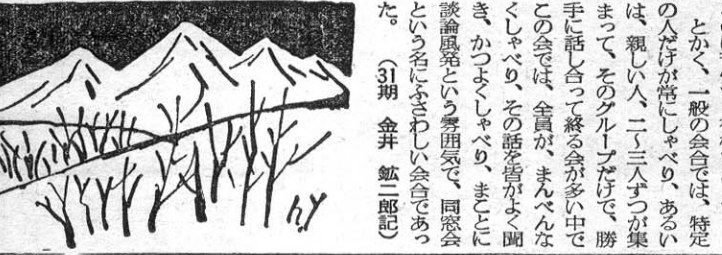 とかく、一般の会合では、特定
の人だけが常にしゃべり、あるい
は、親しい人、二〜三人ずつが集
まって、そのグループだけで、勝
手に話し合って終る会が多い中で
この会では、全員が、まんべんな
くしゃべり、その話を皆がよく聞
き、かつよくしゃべり、まことに
談論風発という雰囲気で、同窓会
という名にふさわしい会合であっ
た。　（31期　金井　鉱二郎記）
h.y